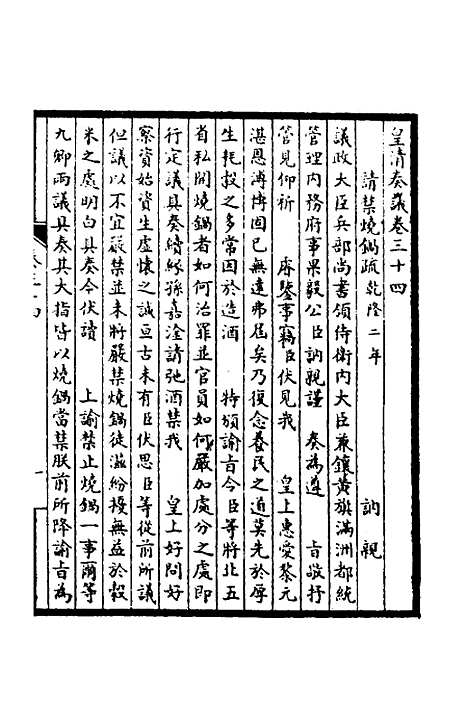 皇清奏議卷三十四
請禁燒鍋疏乾隆二年 訥親
議政大臣兵部尚書領侍衛內大臣兼鑲黃旗滿洲都統
管理內務府事果毅公臣訥親謹 奏為遵 旨敬抒
管見仰祈 睿鑒事竊臣伏見我 皇上惠愛黎元
湛恩溥博固已無遠弗屆矣乃復念養民之道莫先於厚
生耗穀之多當因於造酒 特頒諭旨令臣等將北五
省私開燒鍋者如何治罪並官員如何嚴加處分之處即
行定議具奏續緣孫嘉淦請弛酒禁我 皇上好問好
察資始資生虛懷之誠亘古未有臣伏思臣等從前所議
但議以不宜嚴禁並未將嚴禁燒鍋徒滋紛擾無益於穀
米之處明白具奏今伏讀 上諭禁止燒鍋一事爾等
九卿兩議具奏其大指皆以燒鍋當禁朕前所降諭旨為